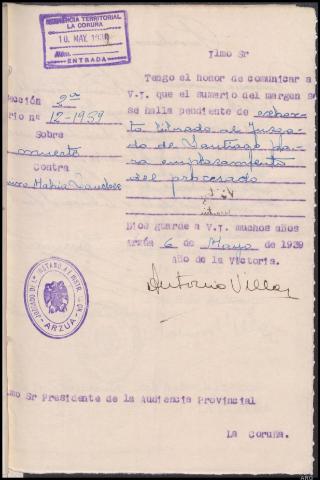 AUDIENCIA TERRITORIAL
LA CORUÑA
10. MAY. 1939
ENTRADA
Ylmo Sr
Tengo el honor de comunicar a
V.I. que el sumario del margen se
se halla pendiente de exhor-
to librado al Juzga-
do de Santiago pa-
ra emplazamiento
del procesado
cción 2ª
rio nº 12-1939
Sobre
muerte
Contra
Dios guarde a V.I. muchos años
Arzúa 6 de Mayo de 1939
Año de la Victoria.
Antonio Villar
ARZUA
lmo Sr Presidente de la Audiencia Provincial
La Coruña.